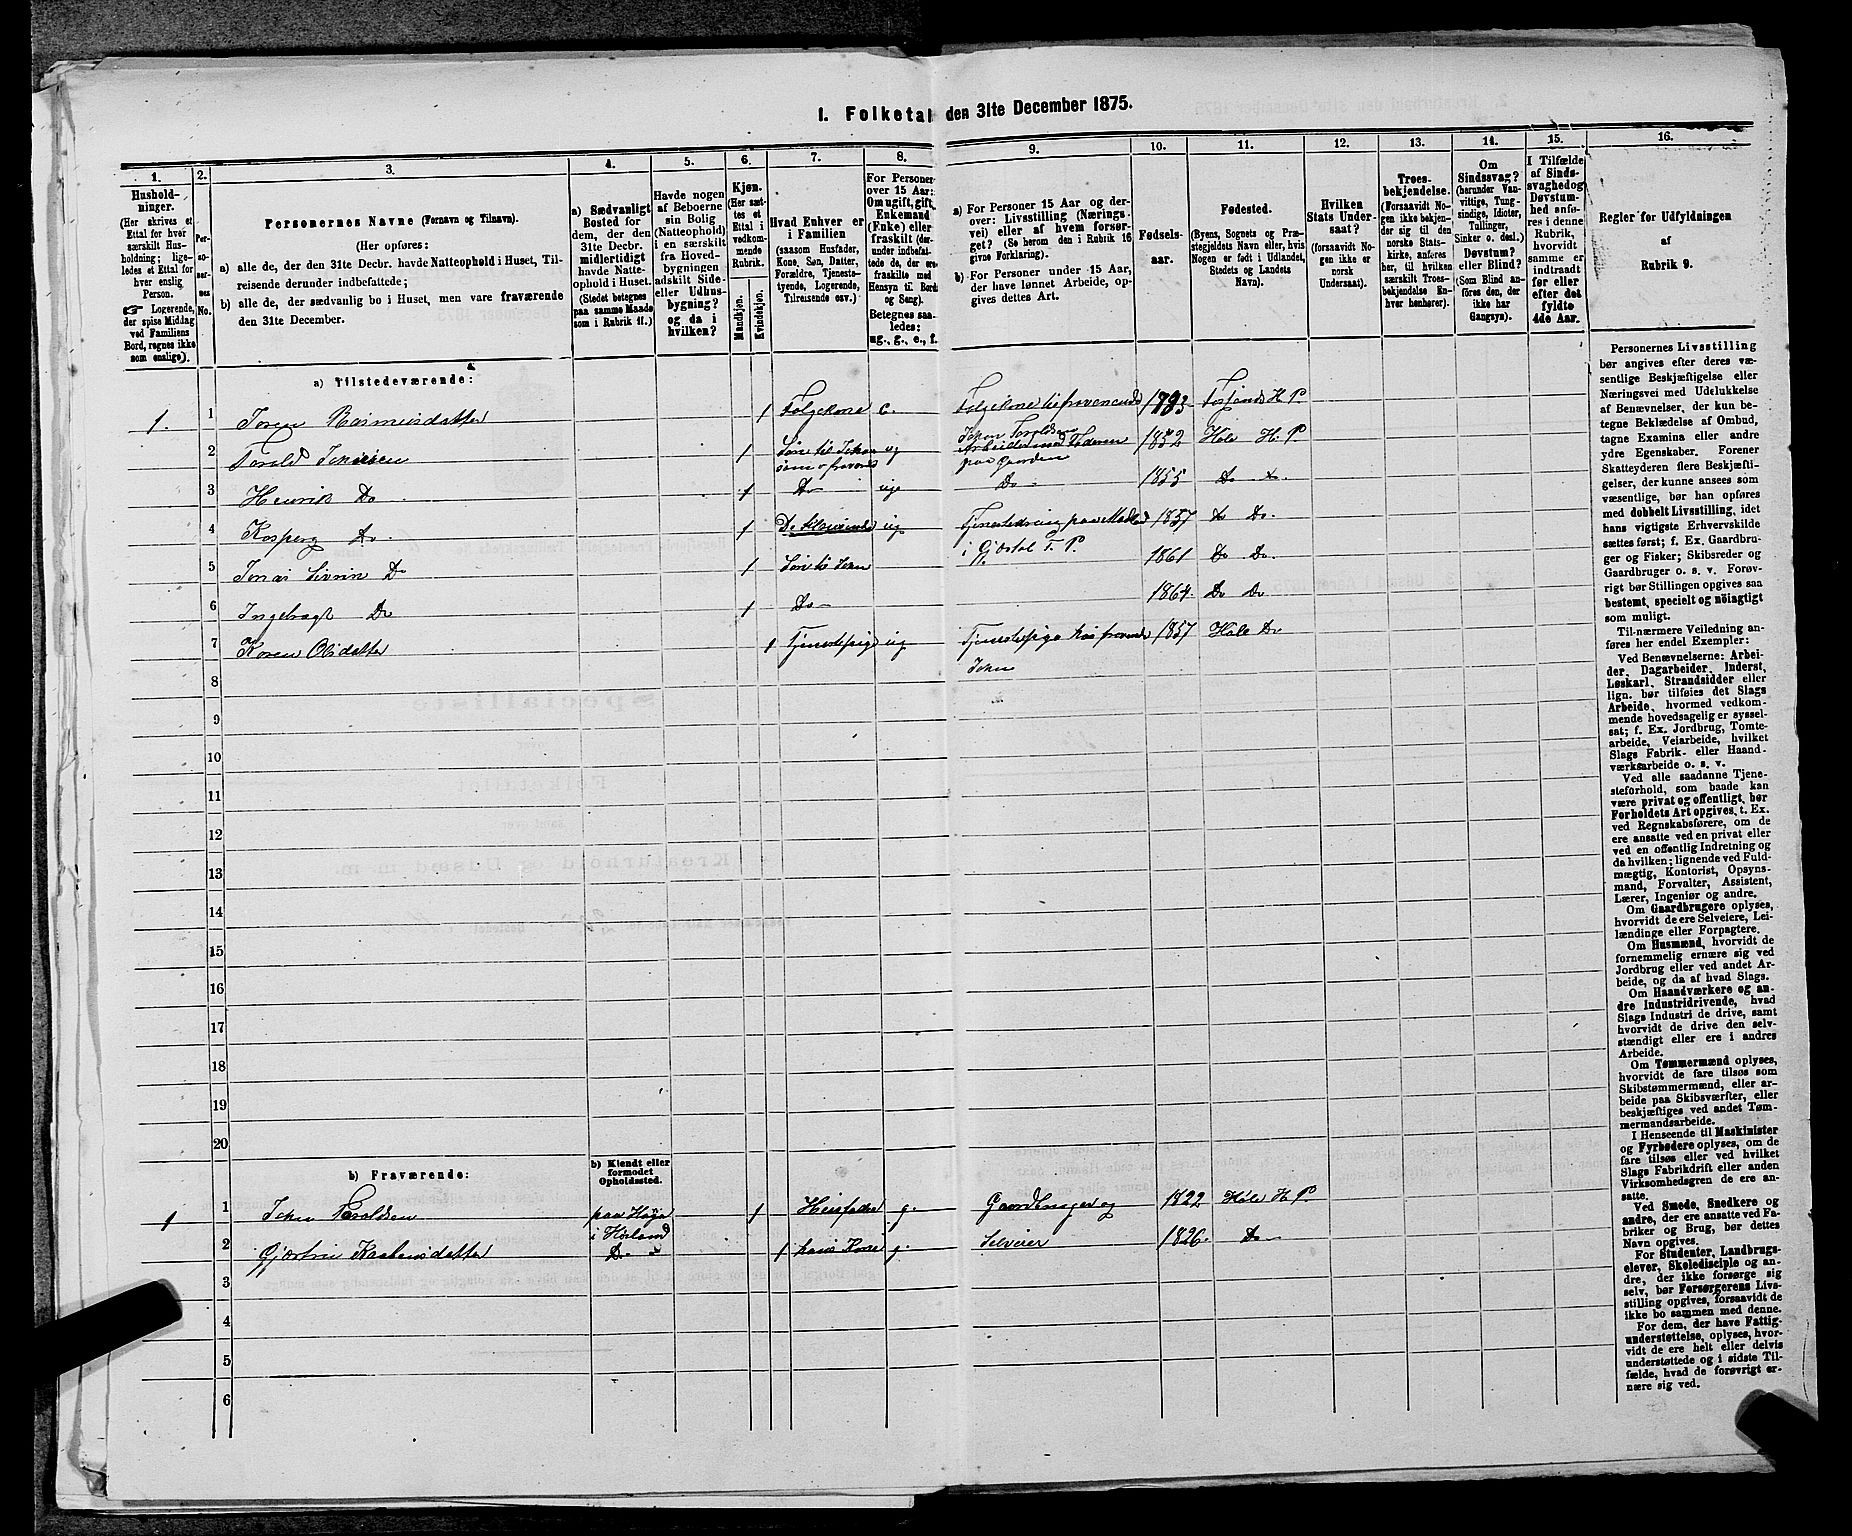 1. Folketal den 31te December 1875.
1.
2.
3.
4.
5.
6.
7.
8.
9.
10.
11.
12.
13.
14.
15.
16.
Hushold-
ninger.
(Her skrives et
Ettal for hver
særskilt Hus-
holdning; lige-
ledes et Ettal for
hver enslig
Person.
☞ Logerende,
der spise Middag
ved Familiens
Bord, regnes ikke
som enslige).
Per-
so-
ner-
nes
No.
Personernes Navne (Fornavn og Tilnavn).
(Her opføres:
a) alle de, der den 31te Decbr. havde Natteophold i Huset, Til-
reisende derunder indbefattede;
b) alle de, der sædvanlig bo i Huset, men vare fraværende
den 31te December.
a) Sædvanligt
Bosted for
dem, der den
31te Decbr.
midlertidigt
havde Natte-
ophold i Huset.
(Stedet betegnes
paa samme Maade
som i Rubrik 11.)
Havde nogen
af Beboerne
sin Bolig
(Natteophold)
i en særskilt
fra Hoved-
bygningen
adskilt Side-
eller Udhus-
bygning?
og da i
hvilken?
Kjøn.
(Her sæt-
tes et
Ettal i
vedkom-
mende
Rubrik.
Mandkjøn.
Kvindekjøn.
Hvad Enhver er
i Familien
(saasom Husfader,
Kone, Søn, Datter,
Forældre, Tjeneste-
tyende, Logerende,
Tilreisende osv.)
For Personer
over 15 Aar:
Om ugift, gift,
Enkemand
(Enke) eller
fraskilt (der-
under indbefat-
tede de, der ere
fraskilte med
Hensyn til Bord
og Seng).
Betegnes saa-
ledes:
ug., g., e., f.
a) For Personer 15 Aar og der-
over: Livsstilling (Nærings-
vei) eller af hvem forsør-
get? (Se herom den i Rubrik 16
givne Forklaring).
b) For Personer under 15 Aar,
der have lønnet Arbeide, op-
gives dettes Art.
Fødsels-
aar.
Fødested.
(Byens, Sognets og Præ-
stegjeldets Navn eller, hvis
Nogen er født i Udlandet,
Stedets og Landets
Navn).
Hvilken
Stats Under-
saat?
(forsaavidt No-
gen ikke er
norsk
Undersaat).
Troes-
bekjendelse.
(Forsaavidt No-
gen ikke bekjen-
der sig til den
norske Stats-
kirke, anføres
her, til hvilken
særskilt Troes-
bekjendelse En-
hver henhører).
Om
Sindssvag?
(herunder Van-
vittige, Tung-
sindige, Idioter,
Tullinger,
Sinker o. desl.)
Døvstum?
eller Blind?
(Som Blind an-
føres den, der
ikke har
Gangsyn).
I Tilfælde
af Sinds-
svaghed og
Døvstum-
hed anfø-
res i denne
Rubrik,
hvorvidt
samme er
indtraadt
før eller
efter det
fyldte
4de Aar.
Regler for Udfyldningen
af
Rubrik 9.
a) Tilstedeværende:
1. 1 Rasmusdatter 1 Folgekone e. 1793 H P
2 Torold Johnsen 1 ug Arbeider med Faderen paa Gaarden 1852 Hole H. P
3 Henrik Do 1 Do ug Do 1855 Do Do
4 Do 1 Do ug 1857 Do Do
5 Jonas Do 1 Søn til John 1861 Do Do
6 Ingebregt Do 1 Do 1864 Do Do
7 Karen Olsdatter 1 Tjenestepige ug Tjenestepige hos 1857 Hole Do
John
8
9
10
11
12
13
14
15
16
17
18
19
20
b) Fraværende:
b) Kjendt eller
formodet
Opholdssted.
1 1 John Toroldsen paa 1 Husfader g. Gaardbruger og 1822 Hole H P.
2 Do 1 hans Kone g. Selveier 1826. Do
3
4
5
6
Personernes Livsstilling
bør angives efter deres væ-
sentlige Beskjæftigelse eller
Næringsvei med Udelukkelse
af Benævnelser, der kun be-
tegne Beklædelse af Ombud,
tagne Examina eller andre
ydre Egenskaber. Forener
Skatteyderen flere Beskjæfti-
gelser, der kunne ansees som
væsentlige, bør han opføres
med dobbelt Livsstilling, idet
hans vigtigste Erhvervskilde
sættes først; f. Ex. Gaardbru-
ger og Fisker; Skibsreder og
Gaardbruger o. s. v. Forøv-
rigt bør Stillingen opgives saa
bestemt, specielt og nøiagtigt
som muligt.
Til-nærmere Veiledning an-
føres her endel Exempler:
Ved Benævnelserne: Arbei-
der, Dagarbeider, Inderst,
Løskarl, Strandsidder eller
lign. bør tilføies det Slags
Arbeide, hvormed vedkom-
mende hovedsagelig er syssel-
sat; f. Ex. Jordbrug, Tomte-
arbeide, Veiarbeide, hvilket
Slags Fabrik- eller Haand-
værksarbeide o. s. v.
Ved alle saadanne Tjene-
steforhold, som baade kan
være privat og offentligt, bør
Forholdets Art opgives, t. Ex.
ved Regnskabsførere, om de
ere ansatte ved en privat eller
ved en offentlig Indretning og
da hvilken; lignende ved Fuld-
mægtig, Kontorist, Opsyns-
mand, Forvalter, Assistent,
Lærer, Ingeniør og andre.
Om Gaardbrugere oplyses,
hvorvidt de ere Selveiere, Lei-
lændinge eller Forpagtere.
Om Husmænd, hvorvidt de
fornemmelig ernære sig ved
Jordbrug eller ved andet Ar-
beide, og da af hvad Slags.
Om Haandværkere og an-
dre Industridrivende, hvad
Slags Industri de drive, samt
hvorvidt de drive den selv-
stændigt eller ere i andres
Arbeide.
Om Tømmermænd oplyses,
hvorvidt de fare tilsøs som
Skibstømmermænd, eller ar-
beide paa Skibsværfter, eller
beskjæftiges ved andet Tøm-
mermandsarbeide.
I Henseende til Maskinister
og Fyrbødere oplyses, om de
fare tilsøs eller ved hvilket
Slags Fabrikdrift eller anden
Virksomhedsgren de ere an-
satte.
Ved Smede, Snedkere og
andre, der ere ansatte ved Fa-
briker og Brug, bør dettes
Navn opgives.
For Studenter, Landbrugs-
elever, Skoledisciple og an-
dre, der ikke forsørge sig
selv, bør Forsørgerens Livs-
stilling opgives, forsaavidt de
ikke bo sammen med denne.
For dem, der have Fattig-
understøttelse, oplyses, hvor-
vidt de ere helt eller delvis
understøttede og i sidste Til-
fælde, hvad de forøvrigt er-
nære sig ved.